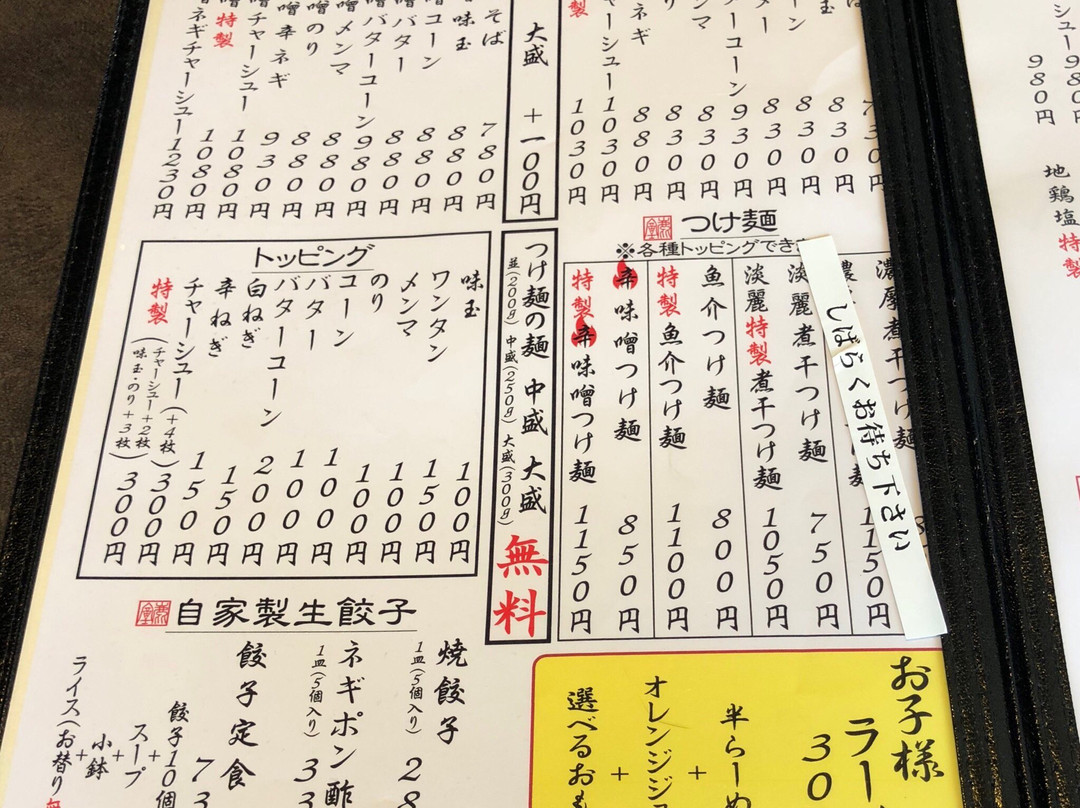 980円
980円
地鶏塩 特製
そば 780円
味玉 880円
コーン 880円
バター 880円
バターコーン 980円
メンマ 880円
のり 880円
辛ネギ 930円
チャーシュー 1080円
特製 1080円
ネギチャーシュー 1230円
大盛 +一〇〇円
730円
830円
830円
830円
コーン 930円
830円
830円
880円
チャーシュー 1030円
特製 1030円
つけ麺
※各種トッピングでき
濃厚煮干つけ麺
しばらくお待ち下さい
1150円
淡麗煮干つけ麺 750円
淡麗特製煮干つけ麺 1050円
魚介つけ麺 800円
特製魚介つけ麺 1100円
辛味噌つけ麺 850円
特製辛味噌つけ麺 1150円
つけ麺の麺 中盛 大盛 無料
並(200g) 中盛(250g) 大盛(300g)
トッピング
味玉 100円
ワンタン 150円
メンマ 100円
のり 100円
コーン 100円
バター 100円
バターコーン 200円
白ねぎ 150円
辛ねぎ 150円
チャーシュー(+4枚) 300円
特製(チャーシュー+2枚 味玉・のり+3枚) 300円
自家製生餃子
焼餃子
1皿(5個入り) 28
ネギポン酢
1皿(5個入り) 33
餃子定食 73
餃子10個
+
スープ
+
小鉢
+
ライス(お替り無
お子様
ラー
30
半らーめ
+
オレンジジュ
+
選べるおも